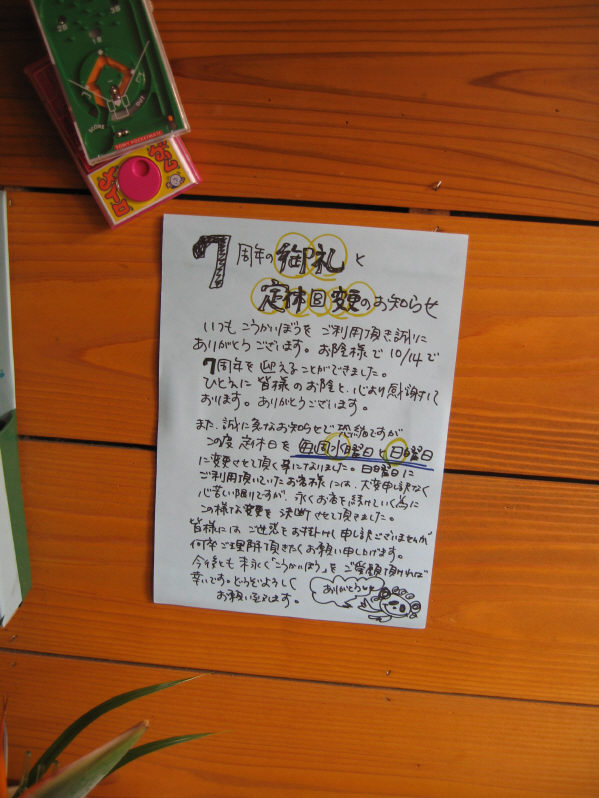 SCORE
OUT
TOMY POCKETMATE
7周年の御礼と
定休日変更のお知らせ
いつもこうかいぼうをご利用頂き誠に
ありがとうございます。お陰様で10/14で
7周年を迎えることができました。
ひとえに皆様のお陰と、心より感謝して
おります。ありがとうございます。
また、誠に急なお知らせで恐縮ですが
この度 定休日を 毎週水曜日と日曜日
に変更させて頂く事になりました。日曜日に
ご利用頂いていたお客様には、大変申し訳なく
心苦しい限りですが、永くお店を続けていく為に
この様な変更を決断させて頂きました。
皆様にはご迷惑をお掛けし申し訳ございませんが
何卒ご理解頂きたくお願い申し上げます。
今後とも末永く「こうかいぼう」をご愛顧頂ければ
幸いです。どうぞよろしく
お願い致します。
ありがとう